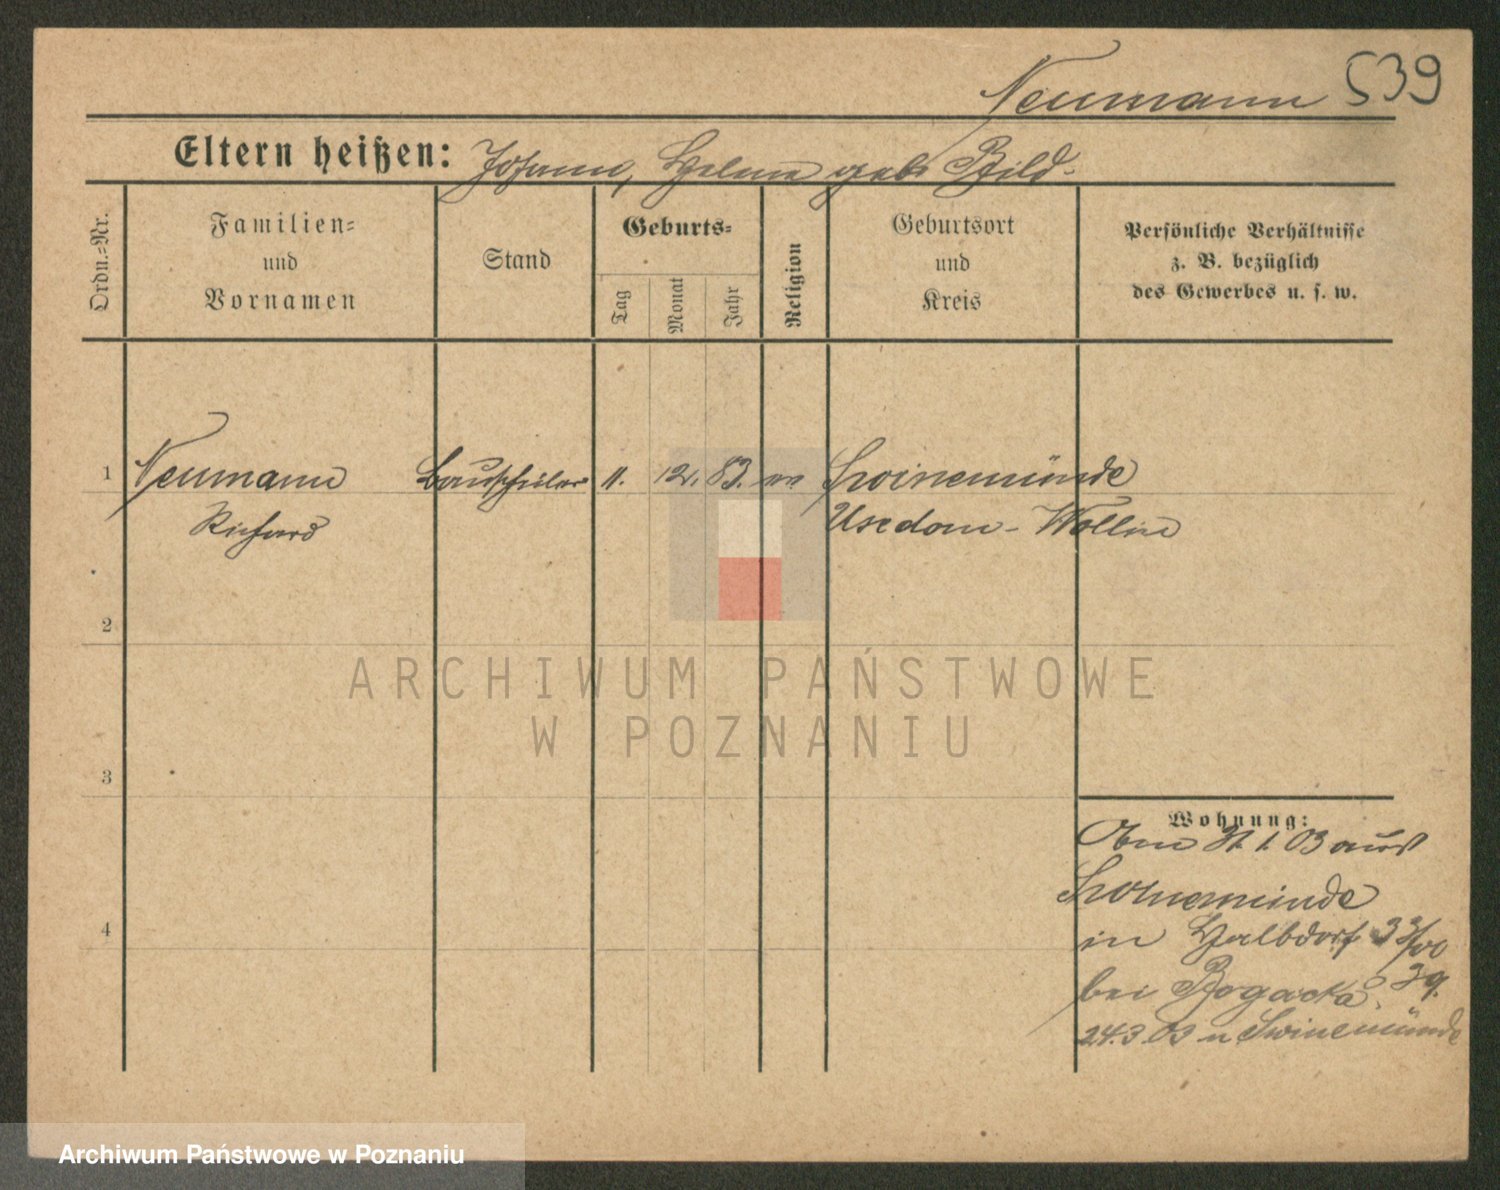 Neumann 539
Eltern heißen: Johann, Helene geb. Bild.
Ordn.-Nr.
Familien-
und
Vornamen
Stand
Geburts-
Tag
Monat
Jahr
Religion
Geburtsort
und
Kreis
Persönliche Verhältnisse
z. B. bezüglich
des Gewerbes u. s. w.
1 Neumann Bauschüler 11. 12. 83. Swinemünde
Richard Usedom-Wollin
2
3
4
ARCHIWUM PAŃSTWOWE
W POZNANIU
Wohnung:
31 1 03 aus
Swinemünde
in Halbdorf 33/00
bei Bogacka 39.
24.3.03 n Swinemünde
Archiwum Państwowe w Poznaniu